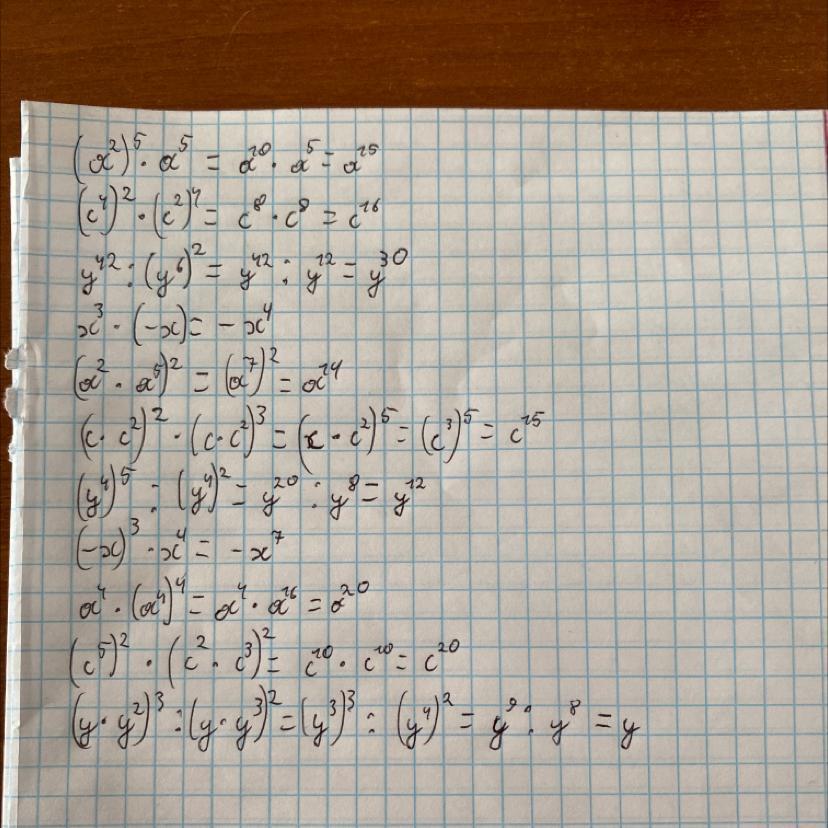 (a²)⁵ · a⁵ = a¹⁰ · a⁵ = a¹⁵
(c⁴)² · (c²)⁴ = c⁸ · c⁸ = c¹⁶
y⁴² : (y⁶)² = y⁴² : y¹² = y³⁰
x³ · (-x) = -x⁴
(a² · a⁵)² = (a⁷)² = a¹⁴
(c · c²)² · (c · c²)³ = (c · c²)⁵ = (c³)⁵ = c¹⁵
(y⁴)⁵ : (y⁴)² = y²⁰ : y⁸ = y¹²
(-x)³ · x⁴ = -x⁷
a⁴ · (a⁴)⁴ = a⁴ · a¹⁶ = a²⁰
(c⁵)² · (c² · c³)² = c¹⁰ · c¹⁰ = c²⁰
(y · y²)³ : (y · y³)² = (y³)³ : (y⁴)² = y⁹ : y⁸ = y